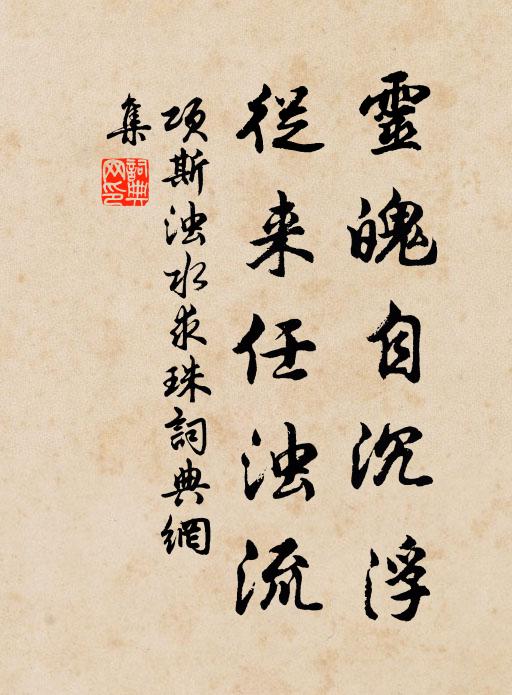 靈魄自沉浮
從来任浊流
項斯浊水求珠詞典網
集
詞典網印